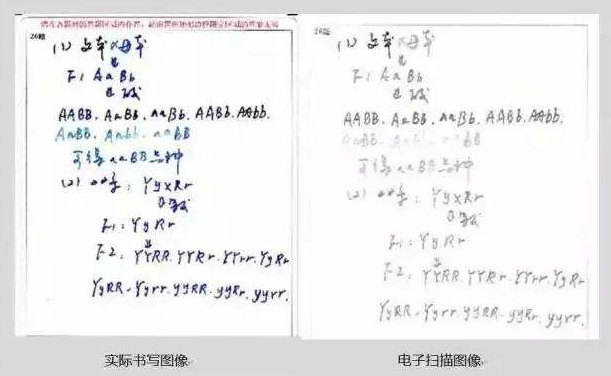 请在各题目的答题区域内作答，超出黑色矩形边框限定区域的答案无效
26题
(1) 父本×母本
↓
F1 AaBb
↓
AABB. AaBB. aaBb. AABb. AAbb.
AaBB. Aabb. aaBB
可得 aaBB 品种
(2) YyRr
F1: YyRr
↓
F2. YYRR. YYRr. YYrr. YyRr
YyRR. Yyrr. yyRR. yyRr. yyrr.
实际书写图像
26题
(1) 父本×母本
↓
F1 AaBb
AABB. AaBB. aaBb. AABb. AAbb.
可得 aaBB 品种
(2)
F1: YyRr
F2. YYRR. YYRr. YYrr. YyRr
YyRR. Yyrr. yyRR. yyRr. yyrr.
电子扫描图像